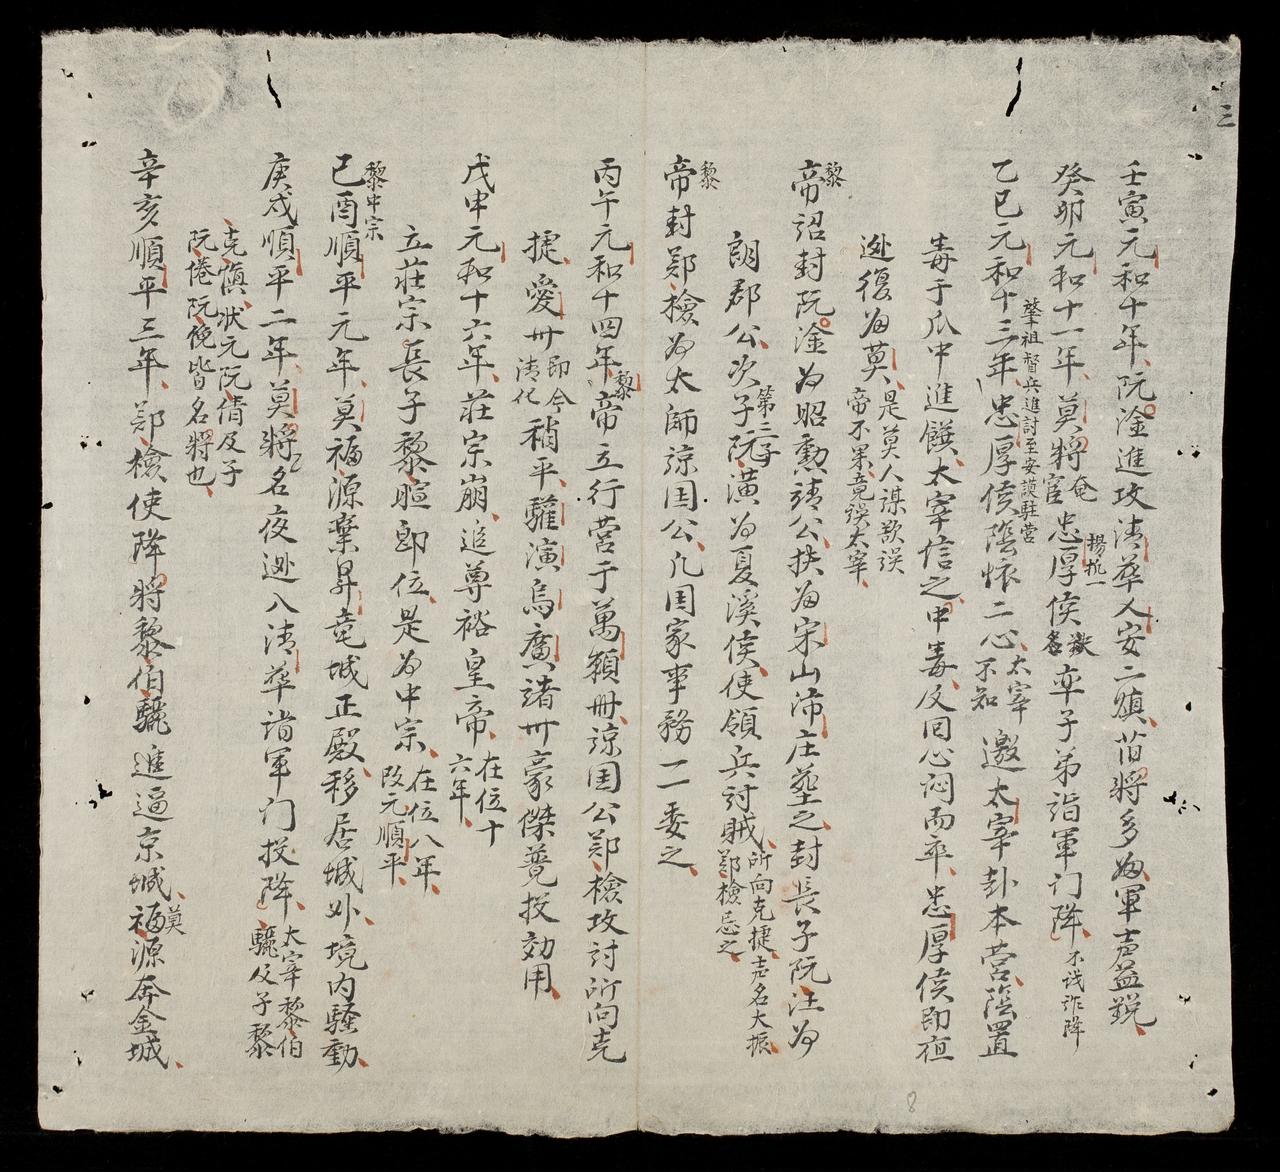 三
壬寅元和十年阮淦進攻清華人安二鎮莒將多為軍声益銳
癸卯元和十一年莫將奄官忠厚侯名楊抗一率子弟詣軍门降不识詐降
乙巳元和十三年肇祖督兵進討至安謨駐营忠厚侯陰怀二心太宰不知邀太宰卦本营陰置
毒于爪中進饌太宰信之中毒及囙心闷而卒忠厚侯即夜
遯復为莫是莫人谋欲误帝不果竟误太宰
黎帝詔封阮淦为昭勲靖公扶为宋山沛庄塟之封長子阮汪为
朗郡公次子第二子阮潢为夏溪侯使領兵讨賊所向克捷声名大振郑檢忌之
黎帝封郑檢为太師諒国公凡国家事務一委之
丙午元和十四年黎帝立行营于萬頼册諒国公郑檢攻討所向克
捷愛卅即今清化稍平驩演烏廣諸卅豪傑競投効用
戊申元和十六年莊宗崩追尊裕皇帝在位十六年
立莊宗長子黎暄即位是为中宗在位八年改元順平
黎中宗己酉順平元年莫福源棄昇竜城正殿移居城外境内騷動
庚戌順平二年莫將名夜遯入清華詣軍门投降太宰黎伯驪及子黎
克慎状元阮倩及子阮倦阮俛皆名將也
辛亥順平三年郑檢使降將黎伯驪進逼京城莫福源奔金城
8